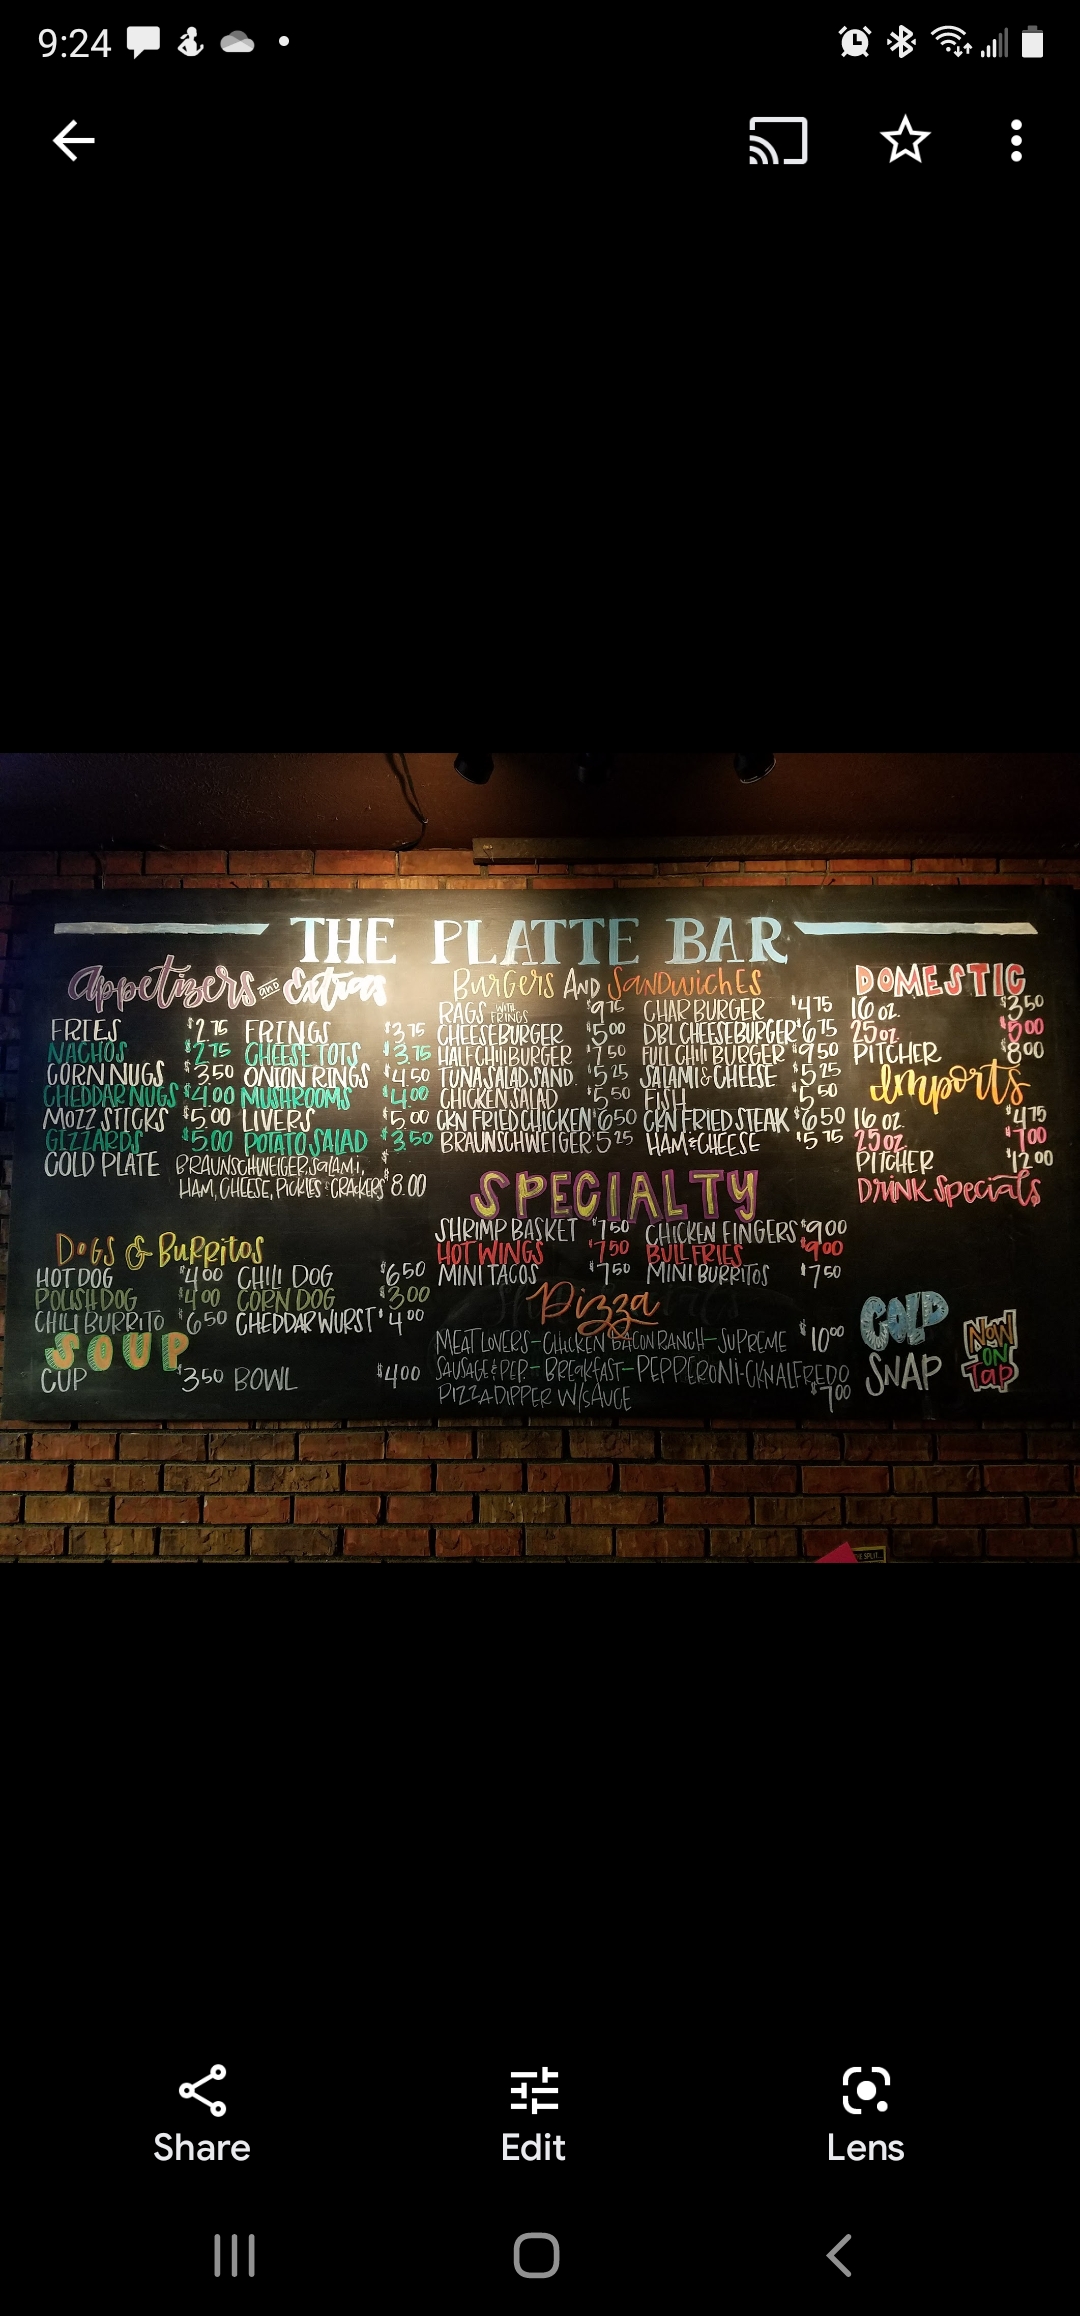 9:24
THE PLATTE BAR
Appetizers and Extras
FRIES $2.75 FRINGS $3.75
NACHOS $2.75 CHEESE TOTS $3.75
CORN NUGS $3.50 ONION RINGS $4.50
CHEDDAR NUGS $4.00 MUSHROOMS $4.00
MOZZ STICKS $5.00 LIVERS $5.00
GIZZARDS $5.00 POTATO SALAD $3.50
COLD PLATE BRAUNSCHWEIGER, SALAMI,
HAM, CHEESE, PICKLES & CRACKERS $8.00
Dogs & Burritos
HOT DOG $4.00 CHILI DOG $6.50
POLISH DOG $4.00 CORN DOG $3.00
CHILI BURRITO $6.50 CHEDDARWURST $4.00
SOUP
CUP $3.50 BOWL $4.00
Burgers And Sandwiches
RAGS WITH FRINGS $9.75 CHAR BURGER $4.75
CHEESEBURGER $5.00 DBL CHEESEBURGER $6.75
HALF CHILI BURGER $7.50 FULL CHILI BURGER $9.50
TUNA SALAD SAND. $5.25 SALAMI & CHEESE $5.25
CHICKEN SALAD $5.50 FISH $5.50
CKN FRIED CHICKEN $6.50 CKN FRIED STEAK $6.50
BRAUNSCHWEIGER $5.25 HAM & CHEESE $5.75
SPECIALTY
SHRIMP BASKET $7.50 CHICKEN FINGERS $9.00
HOT WINGS $7.50 BULL FRIES $9.00
MINI TACOS $7.50 MINI BURRITOS $7.50
Pizza
MEAT LOVERS - CHICKEN BACON RANCH - SUPREME $10.00
SAUSAGE & PEP - BREAKFAST - PEPPERONI - CKN ALFREDO
PIZZA DIPPER W/SAUCE $7.00
DOMESTIC
16 oz. $3.50
25 oz. $5.00
PITCHER $8.00
Imports
16 oz. $4.75
25 oz. $7.00
PITCHER $12.00
DRINK Specials
COLD
SNAP
NOW
ON
TAP
Share Edit Lens